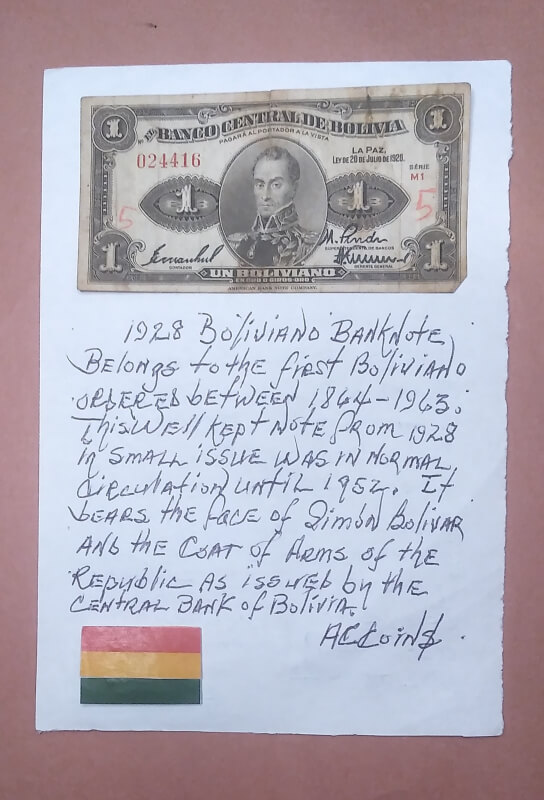 1 Nº BANCO CENTRAL DE BOLIVIA 1
PAGARÁ AL PORTADOR A LA VISTA
024416
LA PAZ,
LEY DE 20 DE JULIO DE 1928.
SÉRIE
M1
1 1
5 5
SUPERINTENDENTE DE BANCOS
CONTADOR
GERENTE GENERAL
1 1
UN BOLIVIANO
EN ORO O GIROS ORO
AMERICAN BANK NOTE COMPANY.
1928 BOLIVIANO BANKNOTE
BELONGS to the first BOLIVIANO
ORDERED between 1864-1963.
This Well kept NOTE from 1928
IN SMALL ISSUE WAS IN NORMAL
CIRCULATION UNTIL 1952. It
bears the face of SIMON BOLIVAR
AND the COAT of ARMS of the
REPUBLIC AS issued by the
CENTRAL BANK of BOLIVIA.
ACCoin$